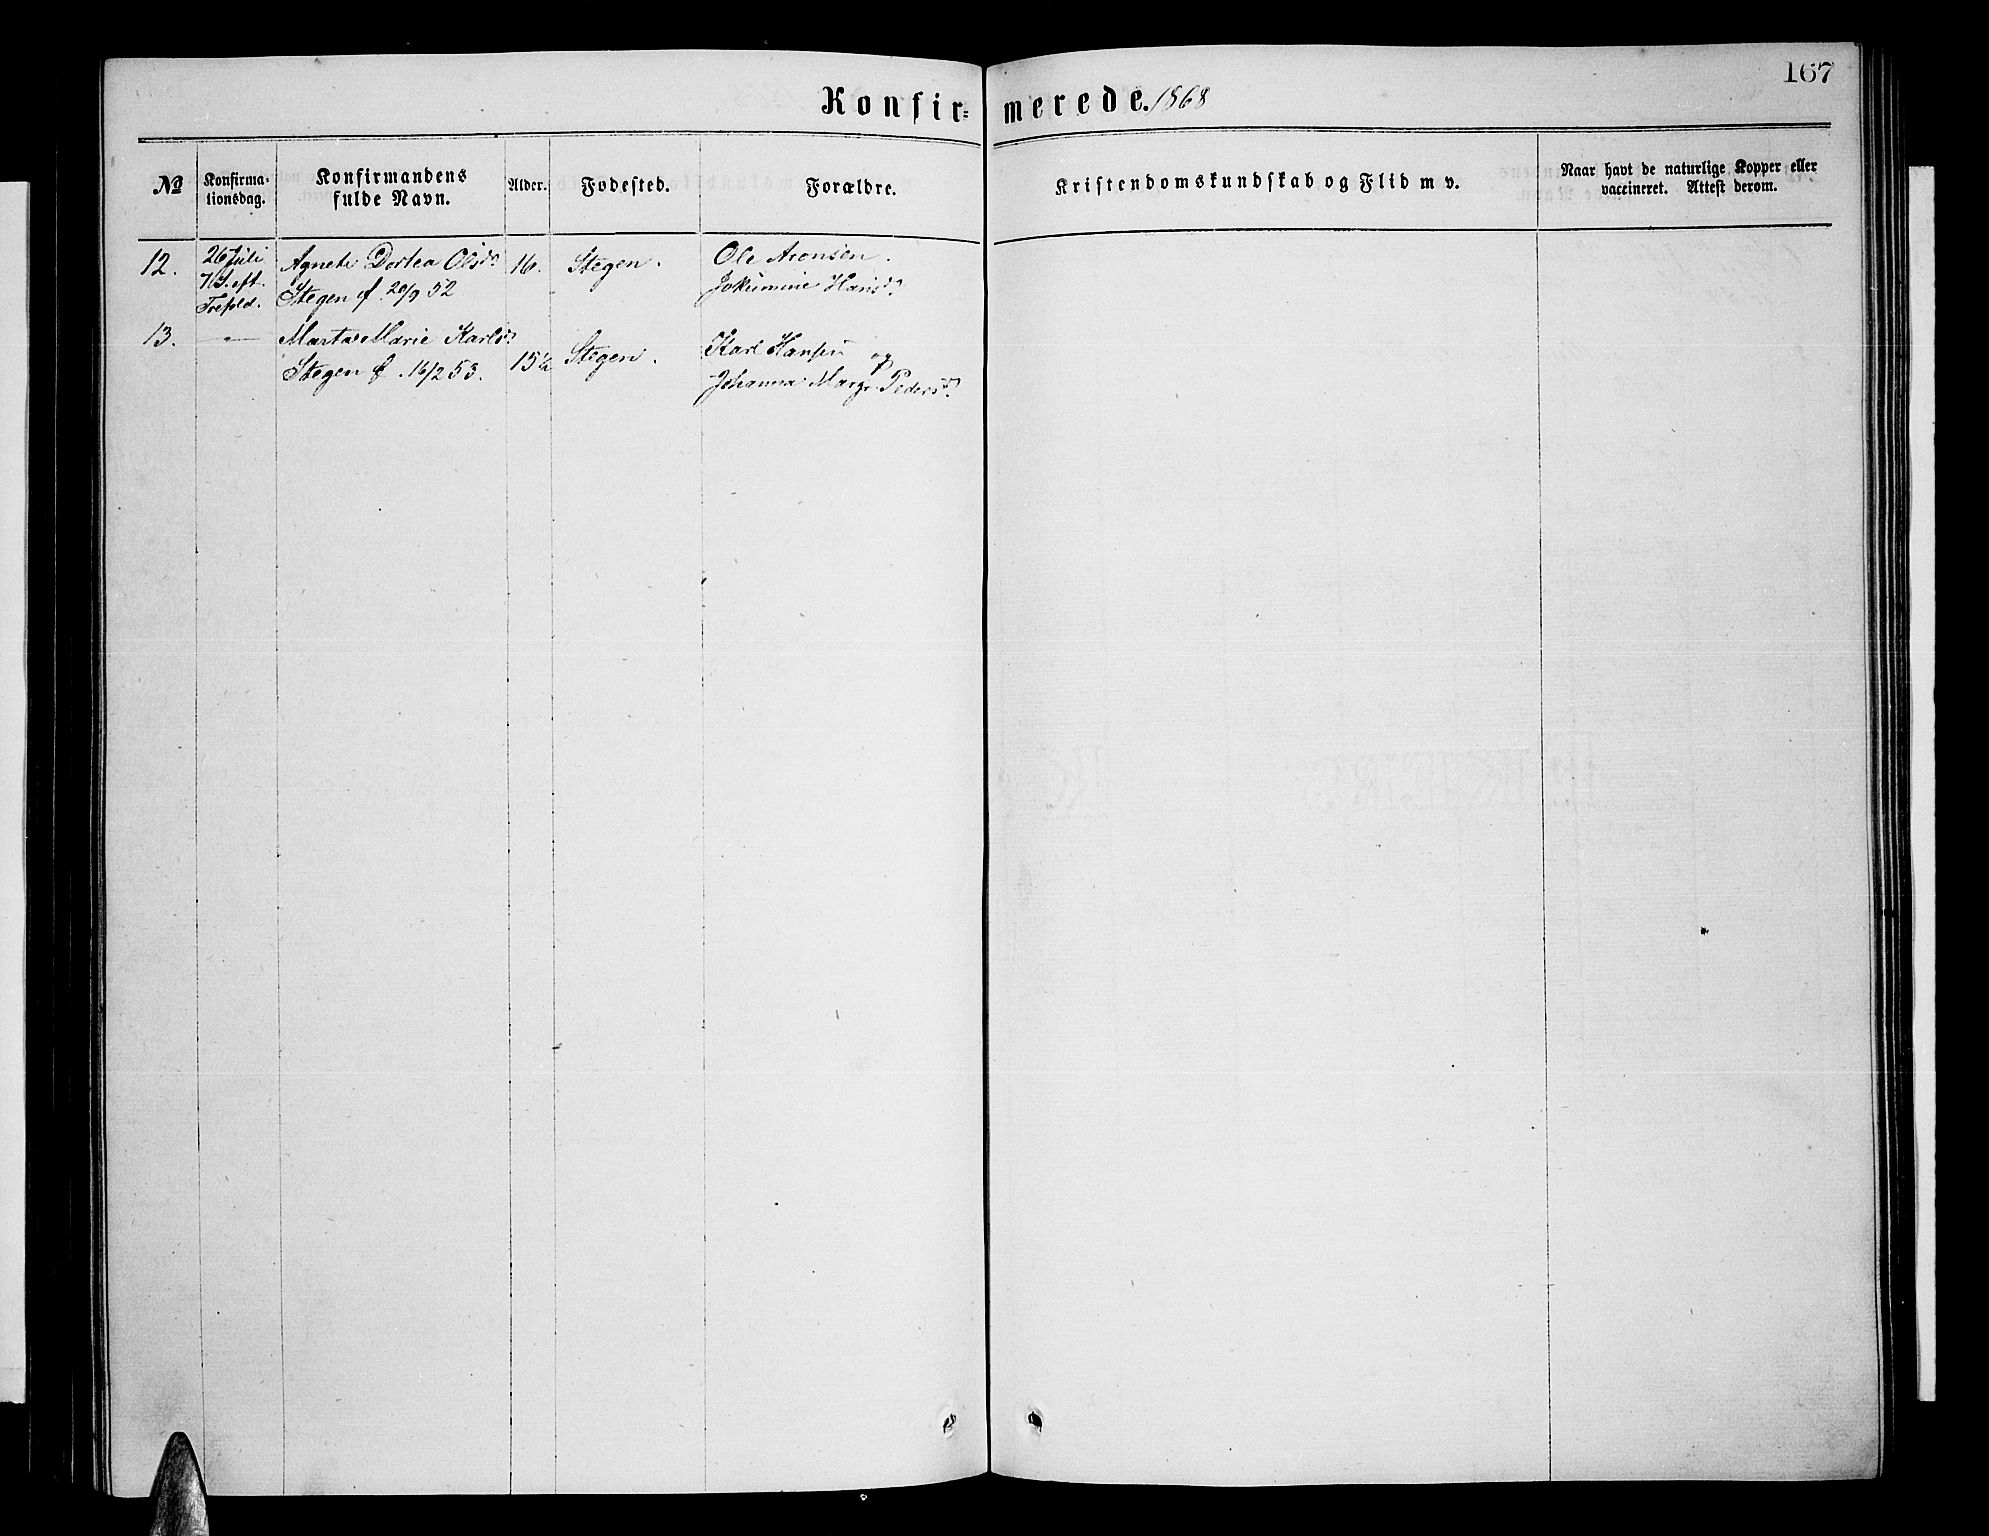 167
Konfir= merede. 1868
No
Konfirma-
tionsdag.
Konfirmandens
fulde Navn.
Alder.
Fødested.
Forældre.
Kristendomskundskab og Flid m v.
Naar havt de naturlige Kopper eller
vaccineret. Attest derom.
12.
26 Juli
7 S. eft.
Trefold.
Agnete Dortea Olsdr
Stegen f. 20/9 52
16.
Stegen.
Ole Aronsen.
Jokumine Hansdr.
13.
—"—
Marta Marie Karlsdr
Stegen f. 16/2 53.
15½
Stegen.
Karl Hansen og
Johanna Margr. Pedersdr.